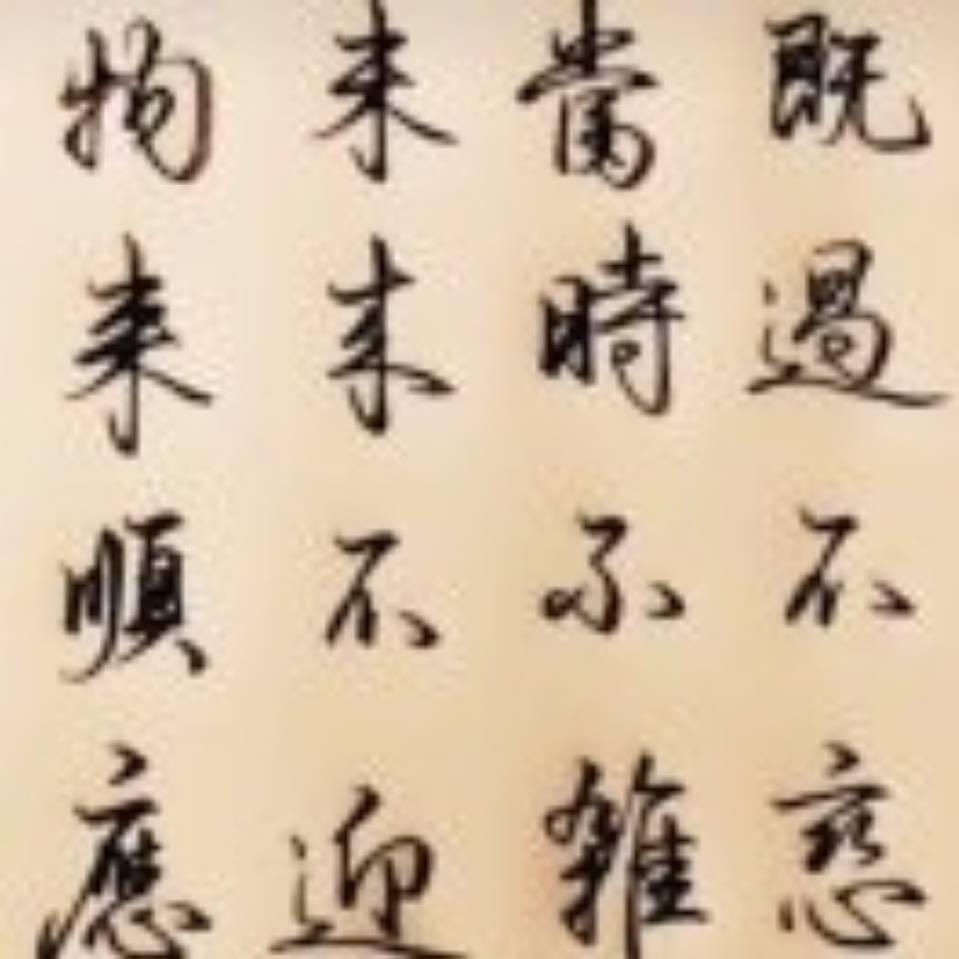 物来順應
未来不迎
當時不雜
既過不恋